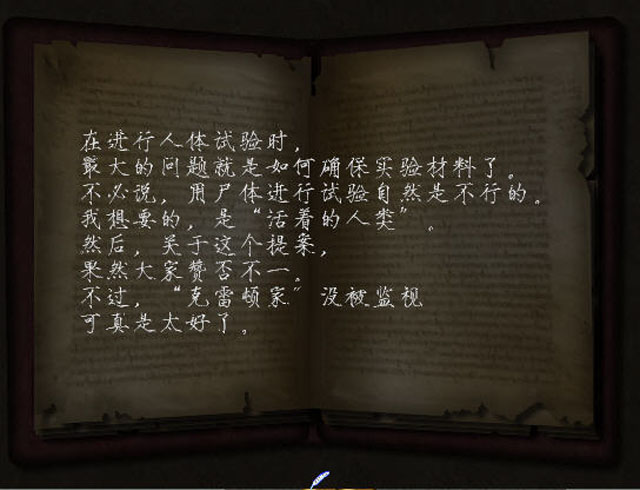 在进行人体试验时，
最大的问题就是如何确保实验材料了。
不必说，用尸体进行试验自然是不行的。
我想要的，是“活着的人类”。
然后，关于这个提案，
果然大家赞否不一。
不过，“克雷顿家”没被监视
可真是太好了。